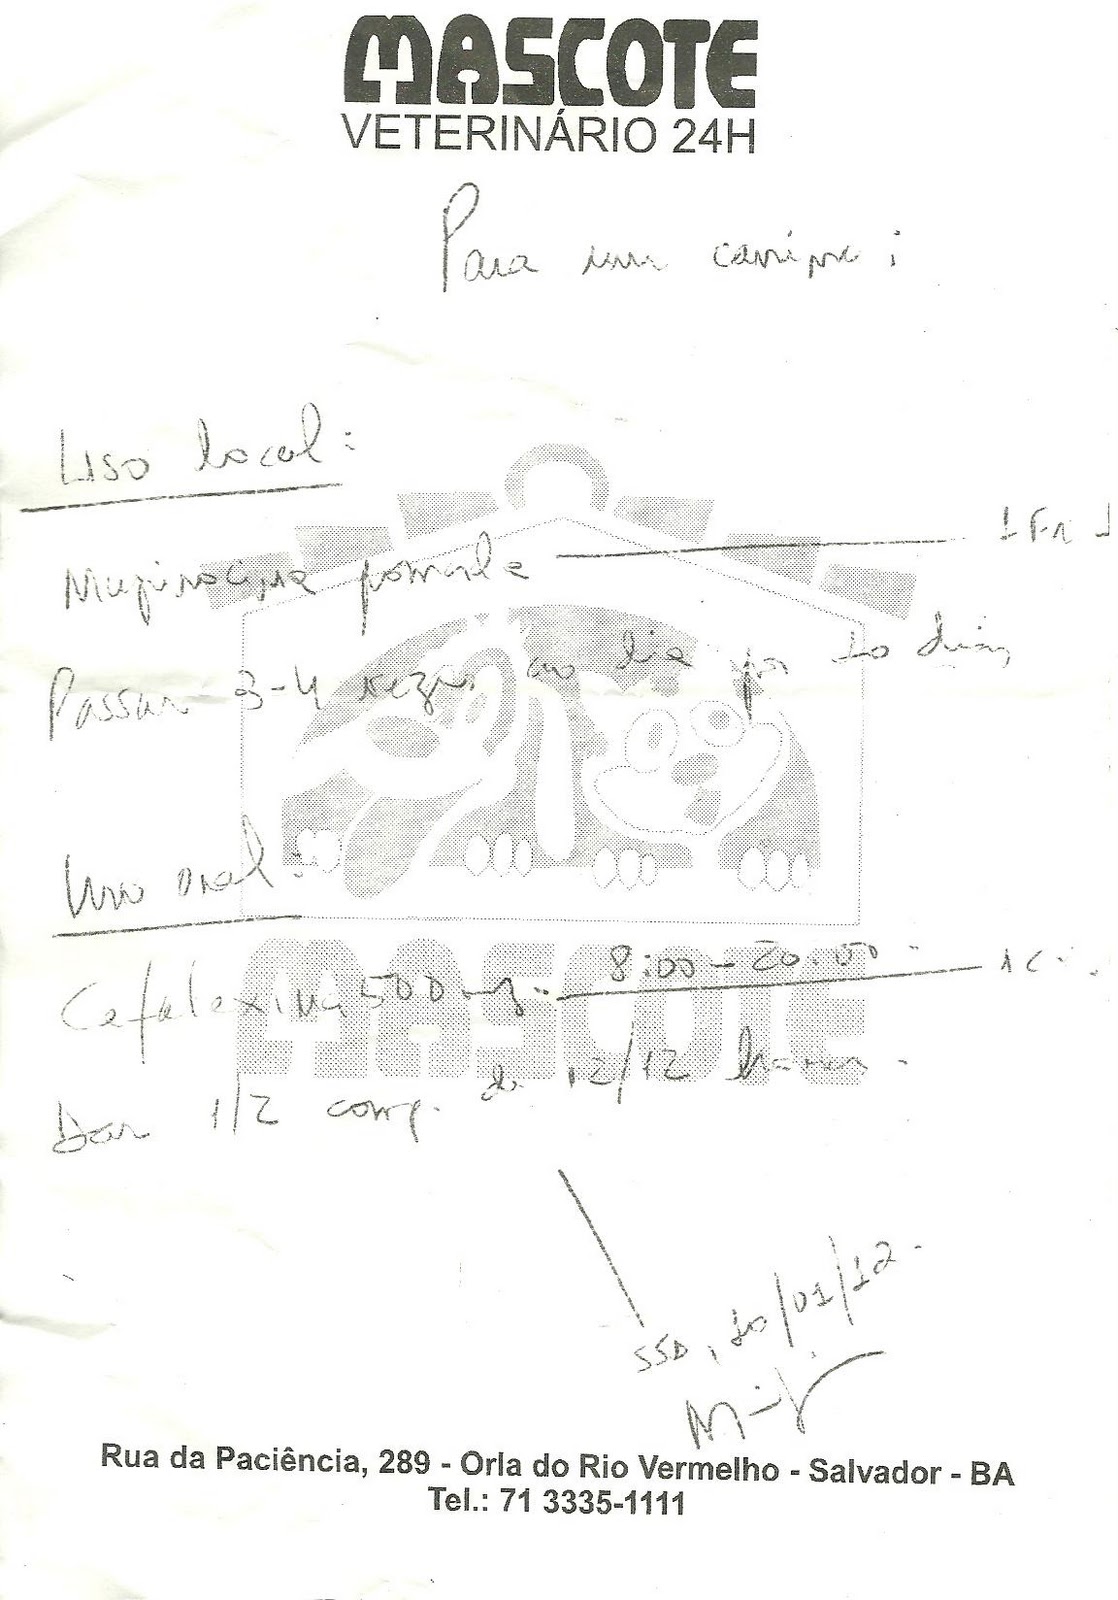 MASCOTE
VETERINÁRIO 24H
Para um canino:
Uso local:
Mupirocina pomada 1 Fr
Passar 3-4 vezes ao dia por 10 dias
Uso oral:
Cefalexina 500mg. 8:00 - 20:00 1C
Dar 1/2 comp. de 12/12 horas.
MASCOTE
SSA, 10/01/12.
Rua da Paciência, 289 - Orla do Rio Vermelho - Salvador - BA
Tel.: 71 3335-1111